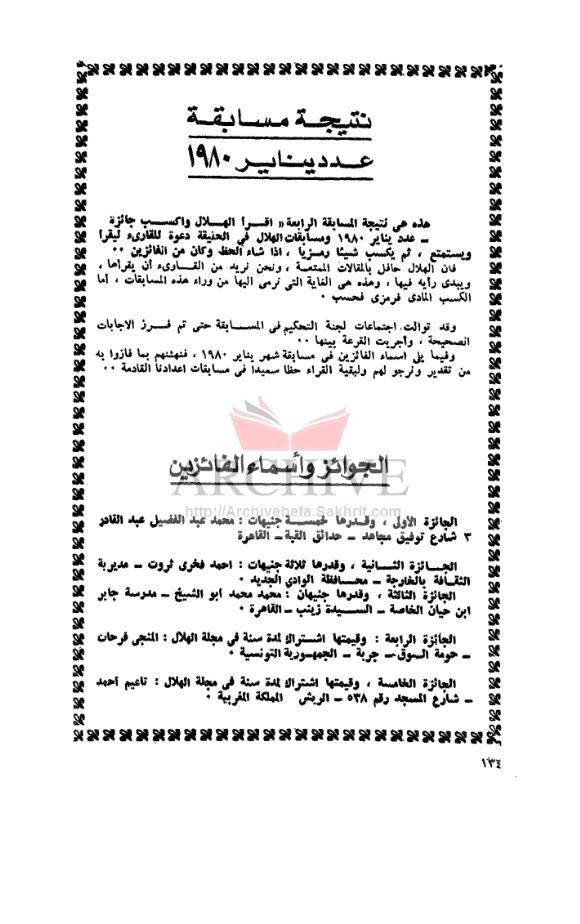 نتيجة مسابقة
عدد يناير ١٩٨٠
هذه هى نتيجة المسابقة الرابعة « اقرأ الهلال واكسب جائزة
ـ عدد يناير ١٩٨٠ ومسابقات الهلال فى الحقيقة دعوة للقارىء ليقرأ
ويستمتع ، ثم يكسب شيئا رمزيا ، اذا شاء الحظ وكان من الفائزين ٠٠
فان الهلال حافل بالمقالات الممتعة ، ونحن نريد من القارىء أن يقرأها ،
ويبدى رأيه فيها ، وهذه هى الغاية التى نرمى اليها من وراء هذه المسابقات ، أما
الكسب المادى فرمزى فحسب ٠
وقد توالت اجتماعات لجنة التحكيم فى المسابقة حتى تم فرز الاجابات
الصحيحة ، وأجريت القرعة بينها ٠٠
وفيما يلى اسماء الفائزين فى مسابقة شهر يناير ١٩٨٠ ، فنهنئهم بما فازوا به
من تقدير ونرجو لهم ولبقية القراء حظا سعيدا فى مسابقات اعدادنا القادمة ٠٠
ARCHIVE
الجوائز وأسماء الفائزين
http://Archivebeta.Sakhrit.com
الجائزة الأولى ، وقدرها خمسة جنيهات : محمد عبد الفضيل عبد القادر
٣ شارع توفيق مجاهد ـ حدائق القبة ـ القاهرة
الجائزة الثانية ، وقدرها ثلاثة جنيهات : احمد فخرى ثروت ـ مديرية
الثقافة بالخارجة ـ محافظة الوادي الجديد ٠
الجائزة الثالثة ، وقدرها جنيهان : محمد محمد أبو الشيخ ـ مدرسة جابر
ابن حيان الخاصة ـ السيدة زينب ـ القاهرة ٠
الجائزة الرابعة : وقيمتها اشتراك لمدة سنة فى مجلة الهلال : المنجى فرحات
ـ حومة السوق ـ جربة ـ الجمهورية التونسية ٠
الجائزة الخامسة ، وقيمتها اشتراك لمدة سنة فى مجلة الهلال : ناعيم أحمد
ـ شارع المسجد رقم ٥٣٨ ـ الريش المملكة المغربية ٠
١٣٤